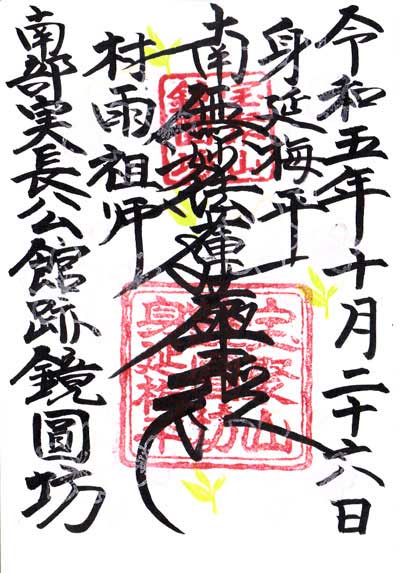 令和五年十月二十六日
身延梅平
南無妙法蓮華経
村雨祖師
南部実長公館跡鏡圓坊